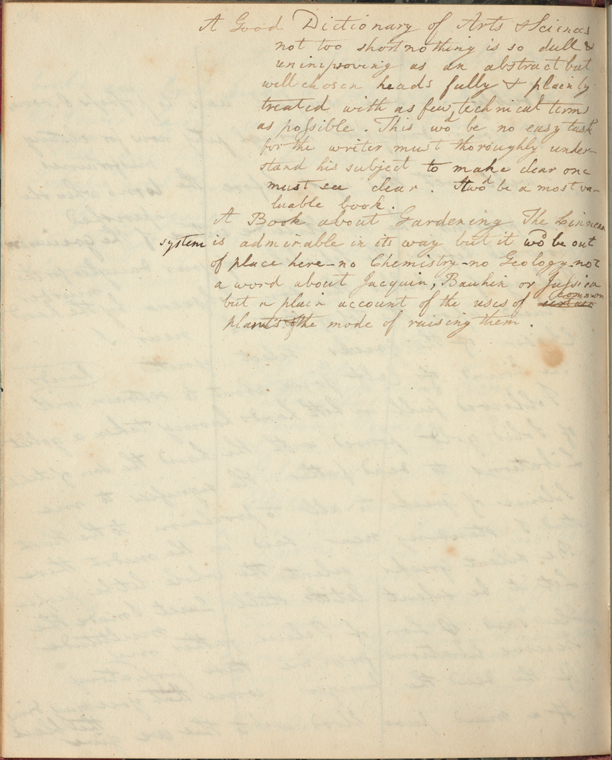 A Good Dictionary of Arts & Sciences
not too short nothing is so dull &
unimproving as an abstract but
well chosen heads fully & plainly
treated with as few technical terms
as possible. This wod be no easy task
for the writer must thoroughly under-
stand his subject to make clear one
must see clear. It wod be a most va-
luable book.
A Book about Gardening The Linnean
system is admirable in its way but it wod be out
of place here – no Chemistry – no Geology – not
a word about Jacquin, Bauhin or Jussieu
but a plain account of the uses of common
plants & the mode of raising them.